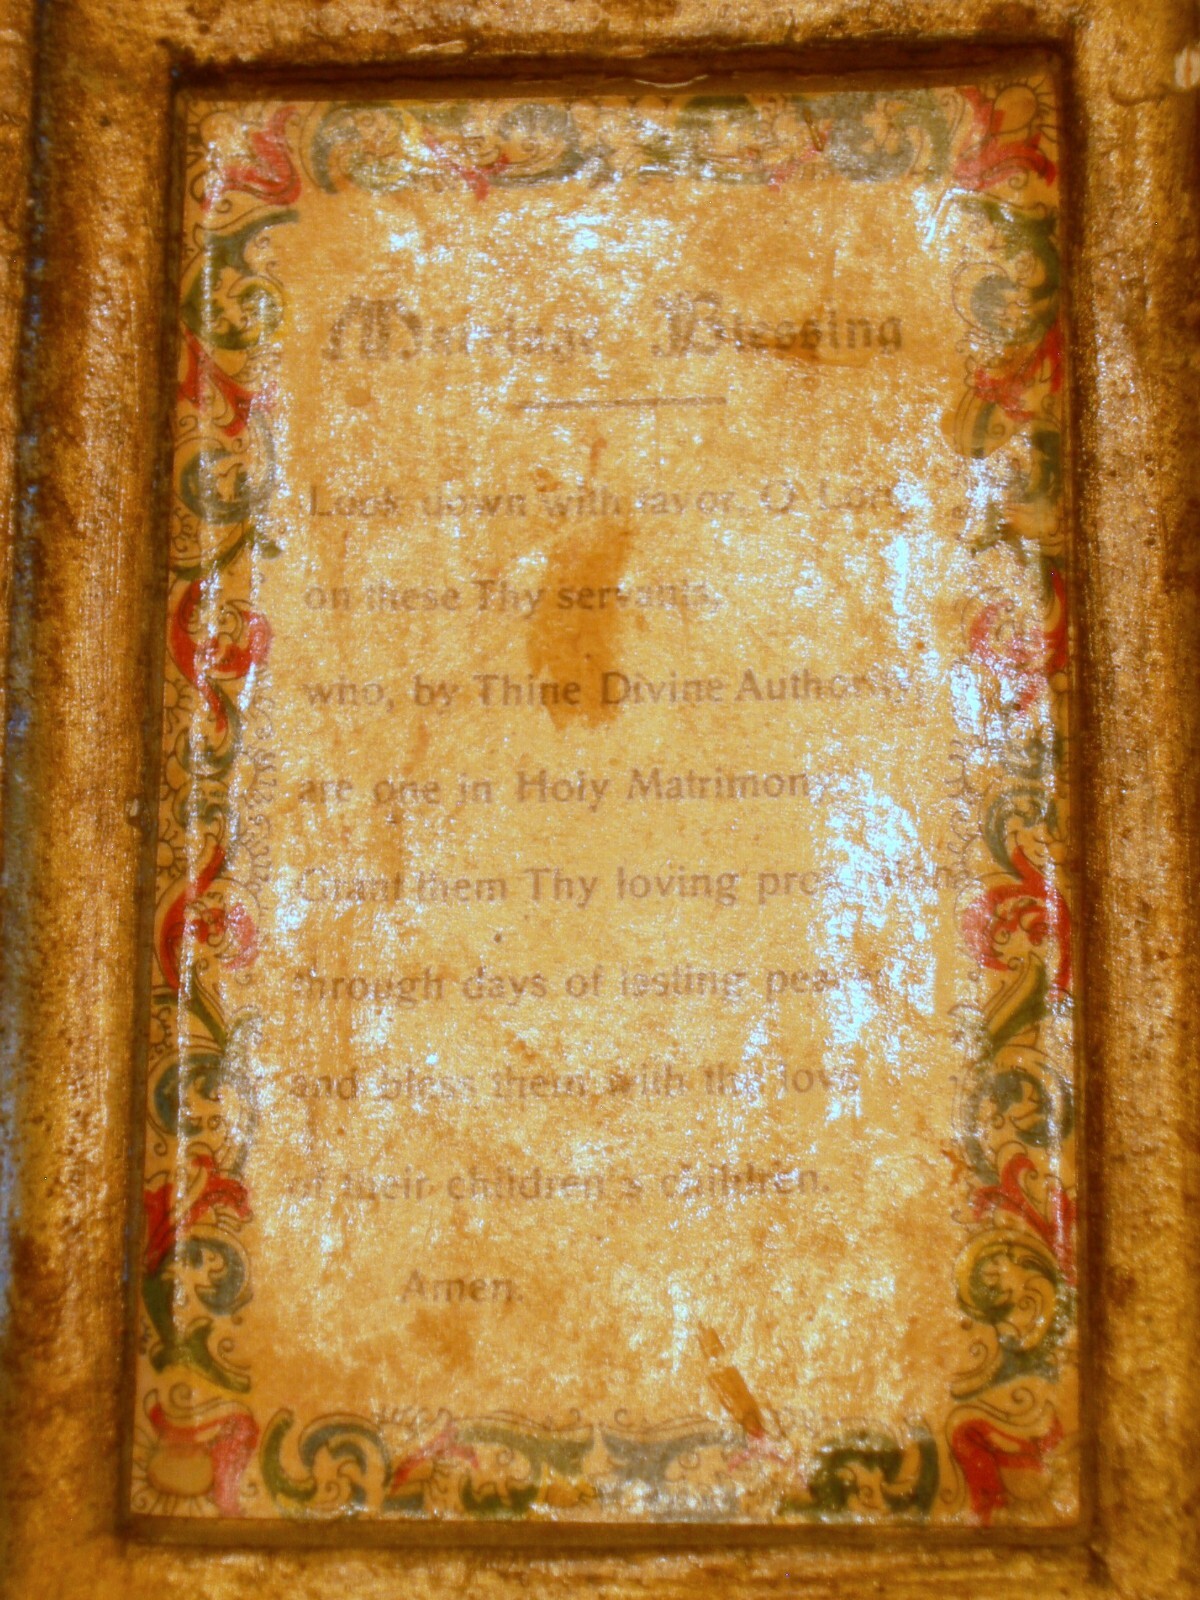 Marriage Blessing
Look down with favor, O Lord
on these Thy servants,
who, by Thine Divine Authority,
are one in Holy Matrimony.
Grant them Thy loving protection
through days of lasting peace
and bless them with the love
of their children's children.
Amen.